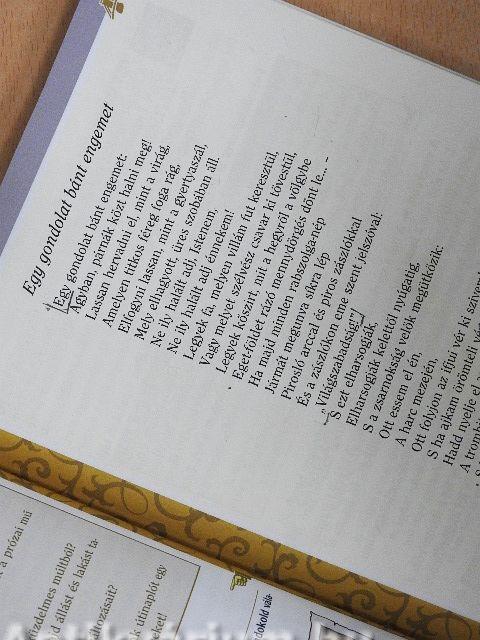 Egy gondolat bánt engemet
Egy gondolat bánt engemet:
Ágyban, párnák közt halni meg!
Lassan hervadni el, mint a virág,
Amelyen titkos féreg foga rág,
Elfogyni lassan, mint a gyertyaszál,
Mely elhagyott, üres szobában áll.
Ne ily halált adj, Istenem,
Ne ily halált adj énnekem!
Legyek fa, melyen villám fut keresztül,
Vagy melyet szélvész csavar ki tövestül,
Legyek kőszirt, mit a hegyről a völgybe
Eget-földet rázó mennydörgés dönt le... –
Ha majd minden rabszolga-nép
Jármát megunva síkra lép
Pirosló arccal és piros zászlókkal
És a zászlókon eme szent jelszóval:
„Világszabadság!”
S ezt elharsogják,
Elharsogják kelettől nyúgatig,
S a zsarnokság velök megütközik:
Ott essem el én,
A harc mezején,
Ott folyjon az ifjui vér ki szívem
S ha ajkam örömteli vég
Hadd nyelje el
A tromb
a prózai mű
küzdelmes múltból?
d állást és lakást ta-
áltozásait?
k útinaplót egy
eket!
dokold vála-